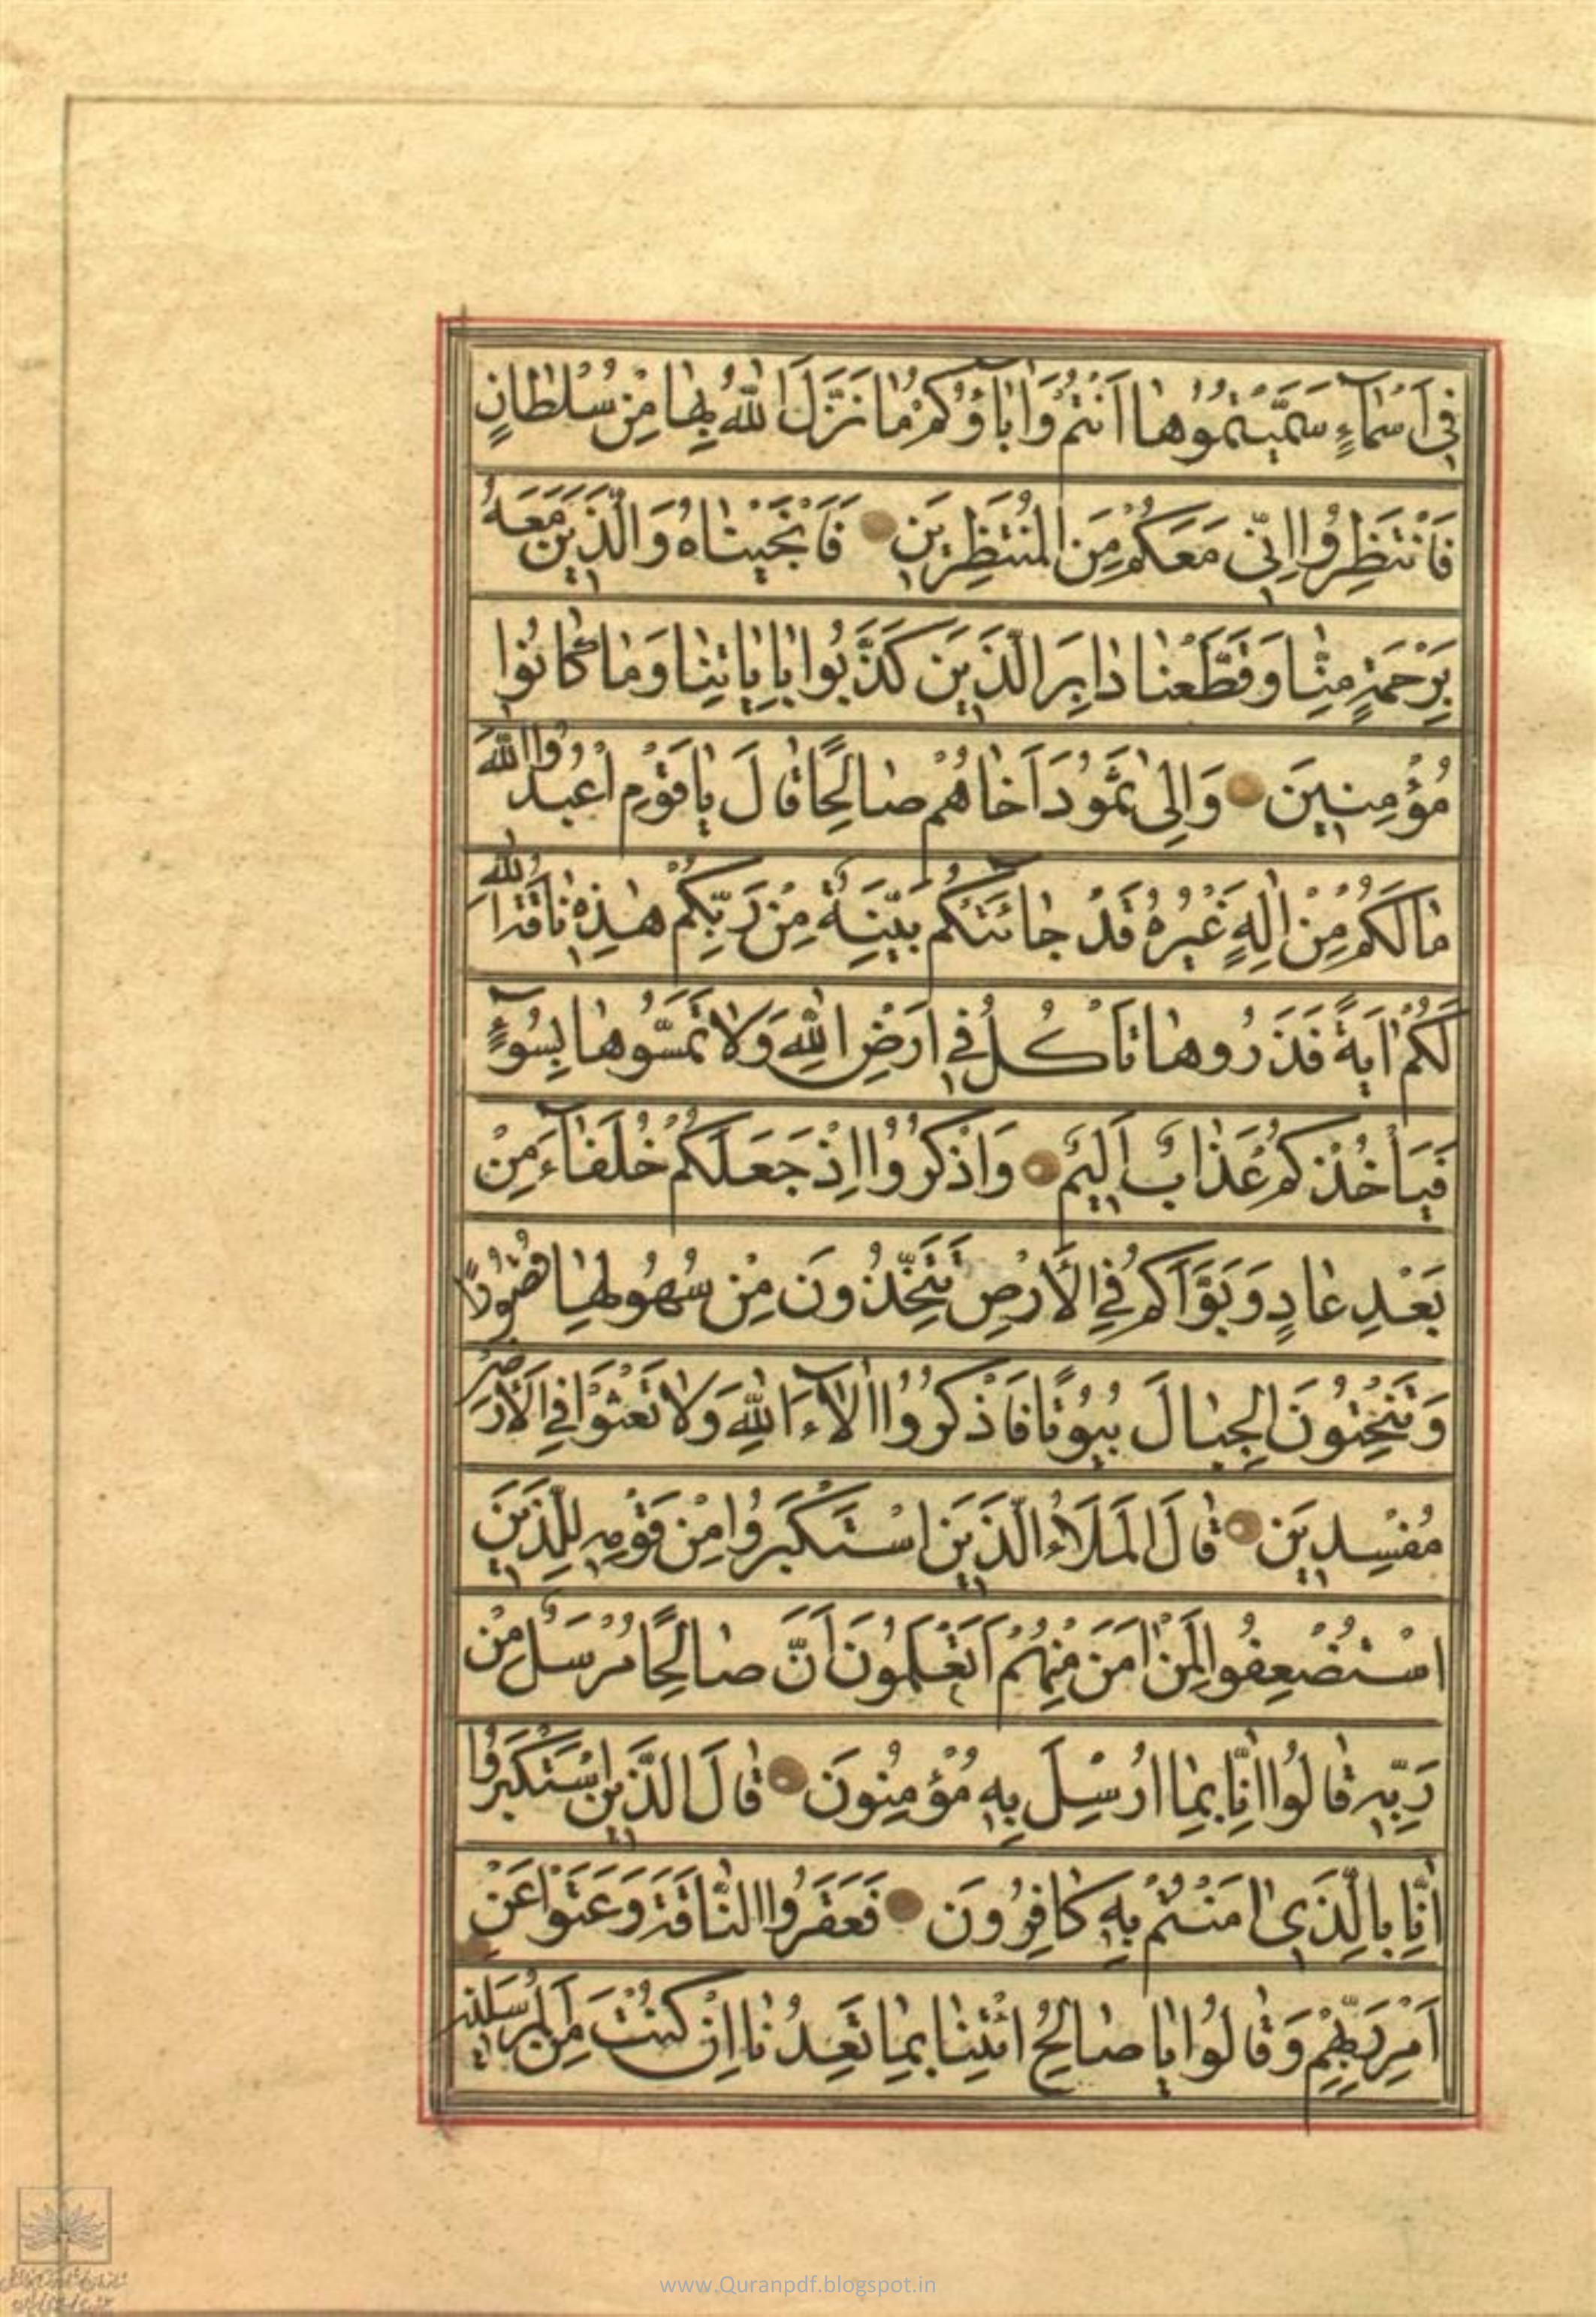 فِي أَسْمَاءٍ سَمَّيْتُمُوهَا أَنْتُمْ وَاٰبَاؤُكُمْ مَا نَزَّلَ اللّٰهُ بِهَا مِنْ سُلْطَانٍ
فَانْتَظِرُوا اِنِّي مَعَكُمْ مِنَ الْمُنْتَظِرِينَ فَأَنْجَيْنَاهُ وَالَّذِينَ مَعَهُ
بِرَحْمَةٍ مِنَّا وَقَطَعْنَا دَابِرَ الَّذِينَ كَذَّبُوا بِاٰيَاتِنَا وَمَا كَانُوا
مُؤْمِنِينَ وَاِلٰى ثَمُودَ اَخَاهُمْ صَالِحًا قَالَ يَا قَوْمِ اعْبُدُوا اللّٰهَ
مَا لَكُمْ مِنْ اِلٰهٍ غَيْرُهُ قَدْ جَائَتْكُمْ بَيِّنَةٌ مِنْ رَبِّكُمْ هٰذِهِ نَاقَةُ اللّٰهِ
لَكُمْ اٰيَةً فَذَرُوهَا تَأْكُلْ فِي اَرْضِ اللّٰهِ وَلَا تَمَسُّوهَا بِسُوءٍ
فَيَأْخُذَكُمْ عَذَابٌ اَلِيمٌ وَاذْكُرُوا اِذْ جَعَلَكُمْ خُلَفَاءَ مِنْ
بَعْدِ عَادٍ وَبَوَّاَكُمْ فِي الْاَرْضِ تَتَّخِذُونَ مِنْ سُهُولِهَا قُصُورًا
وَتَنْحِتُونَ الْجِبَالَ بُيُوتًا فَاذْكُرُوا اٰلَاءَ اللّٰهِ وَلَا تَعْثَوْا فِي الْاَرْضِ
مُفْسِدِينَ قَالَ الْمَلَاُ الَّذِينَ اسْتَكْبَرُوا مِنْ قَوْمِهِ لِلَّذِينَ
اسْتُضْعِفُوا لِمَنْ اٰمَنَ مِنْهُمْ اَتَعْلَمُونَ اَنَّ صَالِحًا مُرْسَلٌ مِنْ
رَبِّهِ قَالُوا اِنَّا بِمَا اُرْسِلَ بِهِ مُؤْمِنُونَ قَالَ الَّذِينَ اسْتَكْبَرُوا
اِنَّا بِالَّذِي اٰمَنْتُمْ بِهِ كَافِرُونَ فَعَقَرُوا النَّاقَةَ وَعَتَوْا عَنْ
اَمْرِ رَبِّهِمْ وَقَالُوا يَا صَالِحُ ائْتِنَا بِمَا تَعِدُنَا اِنْ كُنْتَ مِنَ الْمُرْسَلِينَ
www.Quranpdf.blogspot.in